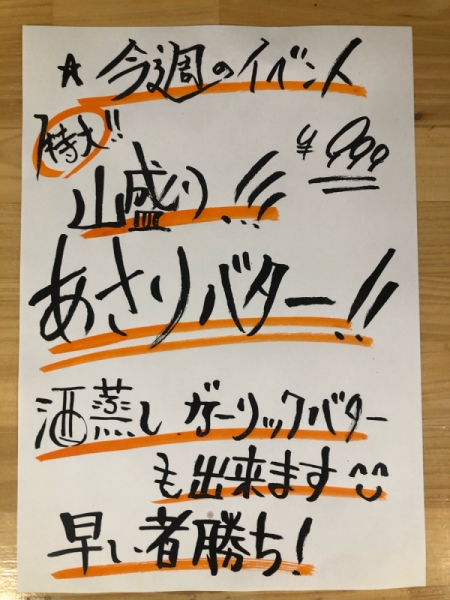 ☆今週のイベント
特大!! ¥999
山盛り!!!
あさりバター!!
酒蒸し ガーリックバター
も出来ます
早い者勝ち!